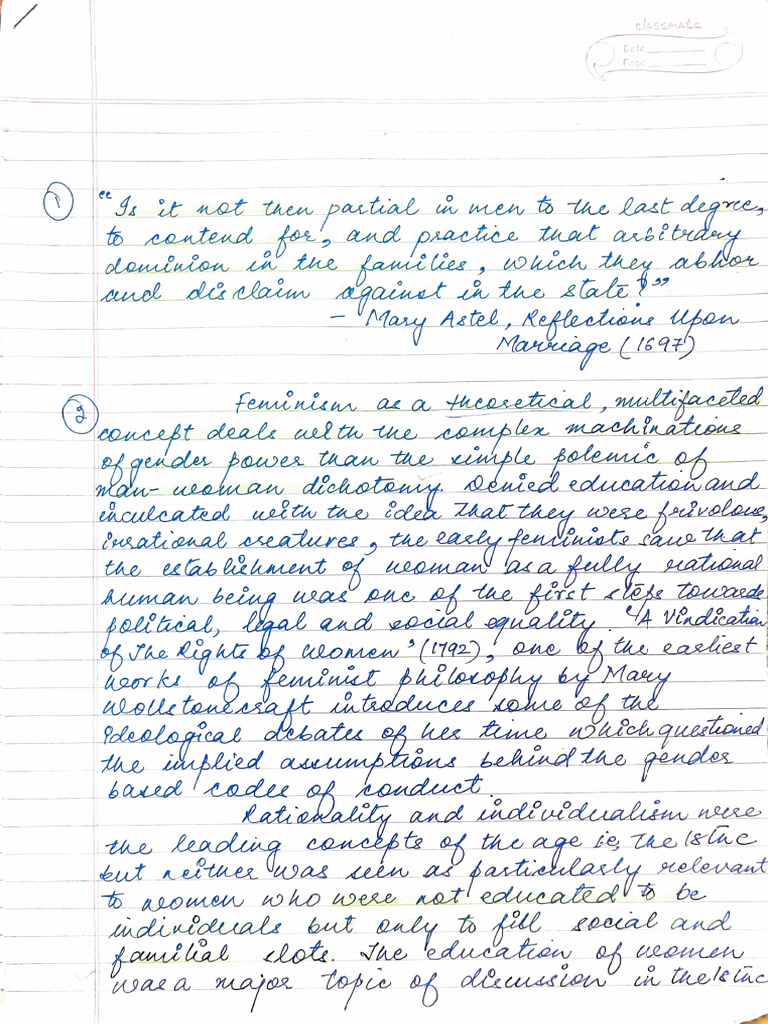 classmate
Date
Page
1
"Is it not then partial in men to the last degree,
to contend for, and practice that arbitrary
dominion in the families, which they abhor
and disclaim against in the state?"
- Mary Astel, Reflections Upon
Marriage (1697)
2
Feminism as a theoretical, multifaceted
concept deals with the complex machinations
of gender power than the simple polemic of
man-woman dichotomy. Denied education and
inculcated with the idea that they were frivolous,
irrational creatures, the early feminists saw that
the establishment of woman as a fully rational
human being was one of the first steps towards
political, legal and social equality. "A Vindication
of The Rights of Women" (1792), one of the earliest
works of feminist philosophy by Mary
Wollstonecraft introduces some of the
ideological debates of her time which questioned
the implied assumptions behind the gender
based codes of conduct.
Rationality and individualism were
the leading concepts of the age ie, The 18thc
but neither was seen as particularly relevant
to women who were not educated to be
individuals but only to fill social and
familial slots. The education of women
was a major topic of discussion in the 18thc